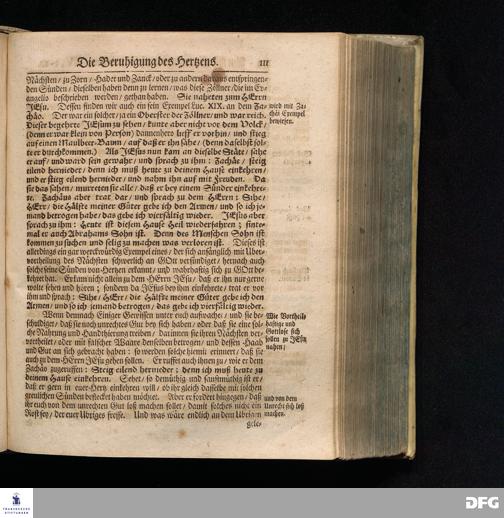 Die Beruhigung des Hertzens. 111
Nächsten / zu Zorn / Hader und Zanck / oder zu andern daraus entspringen-
den Sünden / dieselben haben denn zu lernen / was diese Zöllner / die im Ev-
angelio beschrieben werden / gethan haben. Sie naheten zum HErrn
JEsu. Dessen finden wir auch ein fein Exempel Luc. XIX. an dem Za-
chäo. Der war ein solcher / ja ein Oberster der Zöllner / und war reich.
Dieser begehrte JEsum zu sehen / kunte aber nicht vor dem Volck /
(denn er war klein von Person) dannenhero lieff er vorhin / und stieg
auf einen Maulbeer-Baum / auf daß er ihn sähe / (denn daselbst sol-
te er durchkommen.) Als JEsus nun kam an dieselbe Stäte / sahe
er auf / und ward sein gewahr / und sprach zu ihm: Zachäe / steig
eilend hernieder / denn ich muß heute zu deinem Hause einkehren /
und er stieg eilend hernieder / und nahm ihn auf mit Freuden. Da
sie das sahen / murreten sie alle / daß er bey einem Sünder einkehre-
te. Zachäus aber trat dar / und sprach zu dem HErrn: Sihe /
HErr / die Hälfte meiner Güter gebe ich den Armen / und so ich je-
mand betrogen habe / das gebe ich vierfältig wieder. JEsus aber
sprach zu ihm: Heute ist diesem Hause Heil wiederfahren; sinte-
mal er auch Abrahams Sohn ist. Denn des Menschen Sohn ist
kommen zu suchen und selig zu machen was verloren ist. Dieses ist
allerdings ein gar merckwürdig Exempel eines / der sich anfänglich mit Uber-
vortheilung des Nächsten schwerlich an GOtt versündiget / hernach auch
solche seine Sünden von Hertzen erkannt / und wahrhaftig sich zu GOtt be-
kehret hat. Er kam nicht allein zu dem HErrn JEsu / daß er ihn nur gerne
wolte sehen und hören; sondern da JEsus bey ihm einkehrete / trat er vor
ihm und sprach: Sihe / HErr / die Hälfte meiner Güter gebe ich den
Armen / und so ich jemand betrogen / das gebe ich vierfältig wieder.
Wenn demnach Einiger Gewissen unter euch aufwacht / und sie be-
schuldiget / daß sie noch unrechtes Gut bey sich haben / oder daß sie eine sol-
che Nahrung und Handthierung treiben / darinnen sie ihren Nächsten ver-
vortheilet / oder mit falscher Waare denselben betrogen / und dessen Haab
und Gut an sich gebracht haben: so werden solche hiemit erinnert / daß sie
auch zu dem HErrn JEsu gehen sollen. Er ruffet auch ihnen zu / wie er dem
Zachäo zugeruffen: Steig eilend hernieder; denn ich muß heute zu
deinem Hause einkehren. Sehet / so demüthig und sanftmüthig ist er /
daß er gern in euer Hertz einkehren will / ob ihr gleich dasselbe mit solchen
greulichen Sünden befleckt haben möchtet. Aber er fordert hingegen / daß
ihr euch von dem unrechten Gut loß machen sollet / damit solches nicht ein
Rost sey / der euer Ubriges fresse. Und was wäre endlich an dem Ubrigen
gele-
wird mit Za-
chäi Exempel
bewiesen.
Wie Vortheil-
hafftige und
Gottlose sich
sollen zu JEsu
nahen;
und von dem
Unrecht sich loß
machen.
FRANCKESCHE
STIFTUNGEN
DFG